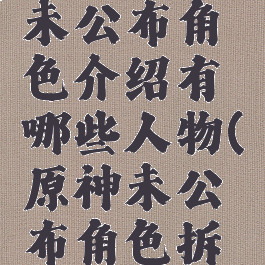 未公布角
色介绍有
哪些人物(
原神未公
布角色拆